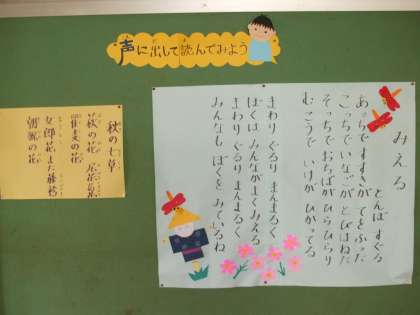 声に出して読んでみよう
みえる
とんぼすぐる
あっちですすきが てをふった
こっちでいなごが とびはねた
そっちでおちばが ひらひらり
むこうで いけが ひかってる
まわり ぐるり まんまるく
ぼくは みんながよくみえる
まわり ぐるり まんまるく
みんなも ぼくを みているね
秋の七草
萩の花 尾花 葛花
瞿麦の花
女郎花 また藤袴
朝貌の花